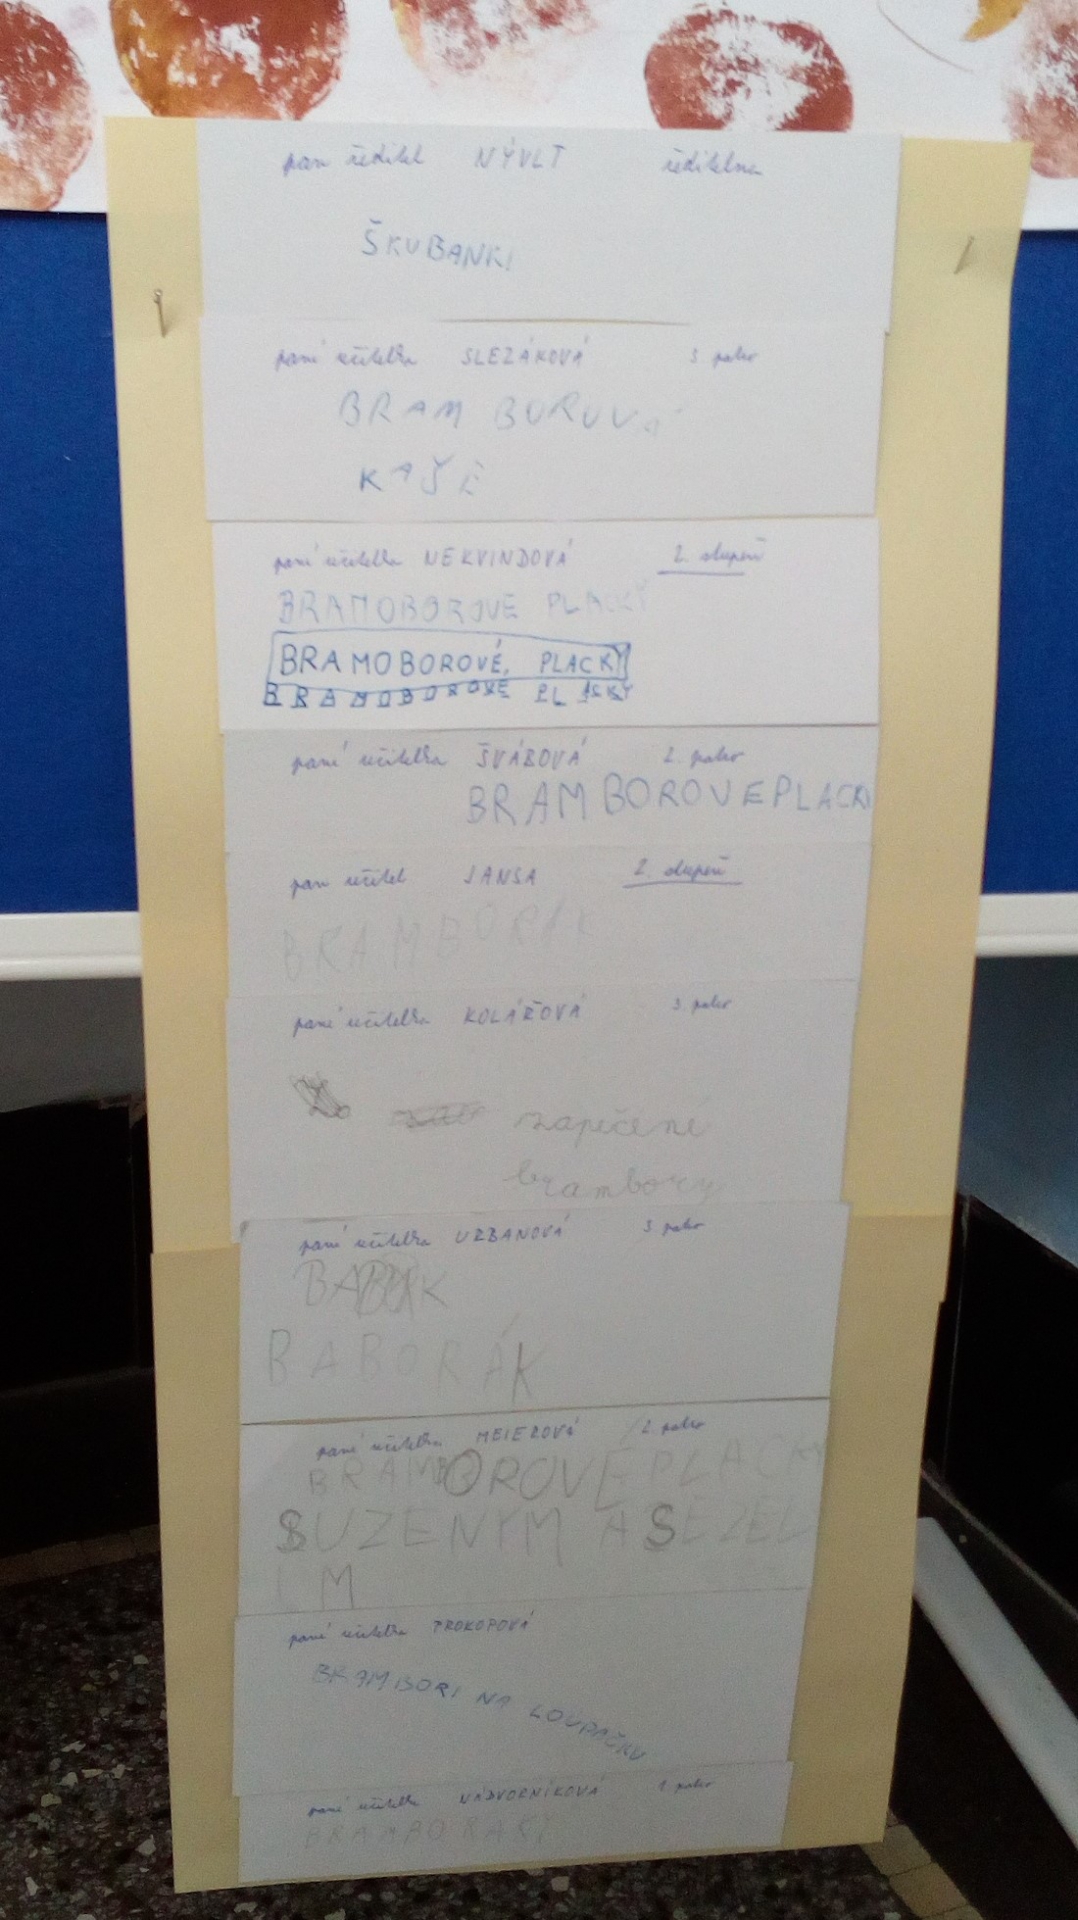 pan ředitel NÝVLT ředitelna
ŠKUBANKI
paní učitelka SLEZÁKOVÁ 3. patro
BRAM BOROVÁ
KAŠE
paní učitelka NEKVINDOVÁ 2. stupeň
BRAMOBOROVE PLACKY
BRAMOBOROVÉ, PLACKY
BRAMOBOROVE PLACKY
paní učitelka ŠVÁBOVÁ 2. patro
BRAMBOROVEPLACKI
pan učitel JANSA 2. stupeň
BRAMBORÁK
paní učitelka KOLÁŘOVÁ 3. patro
zapečené
brambory
paní učitelka URBANOVÁ 3 patro
BABORÁK
paní učitelka MEIEROVÁ 2 patro
BRAMBOROVÉ PLACKY
SUZENYM A SEZEL
ÍM
paní učitelka PROKOPOVÁ
BRAMBORI NA LOUPAČKU
paní učitelka NÁDVORNÍKOVÁ 1 patro
BRAMBORÁKY